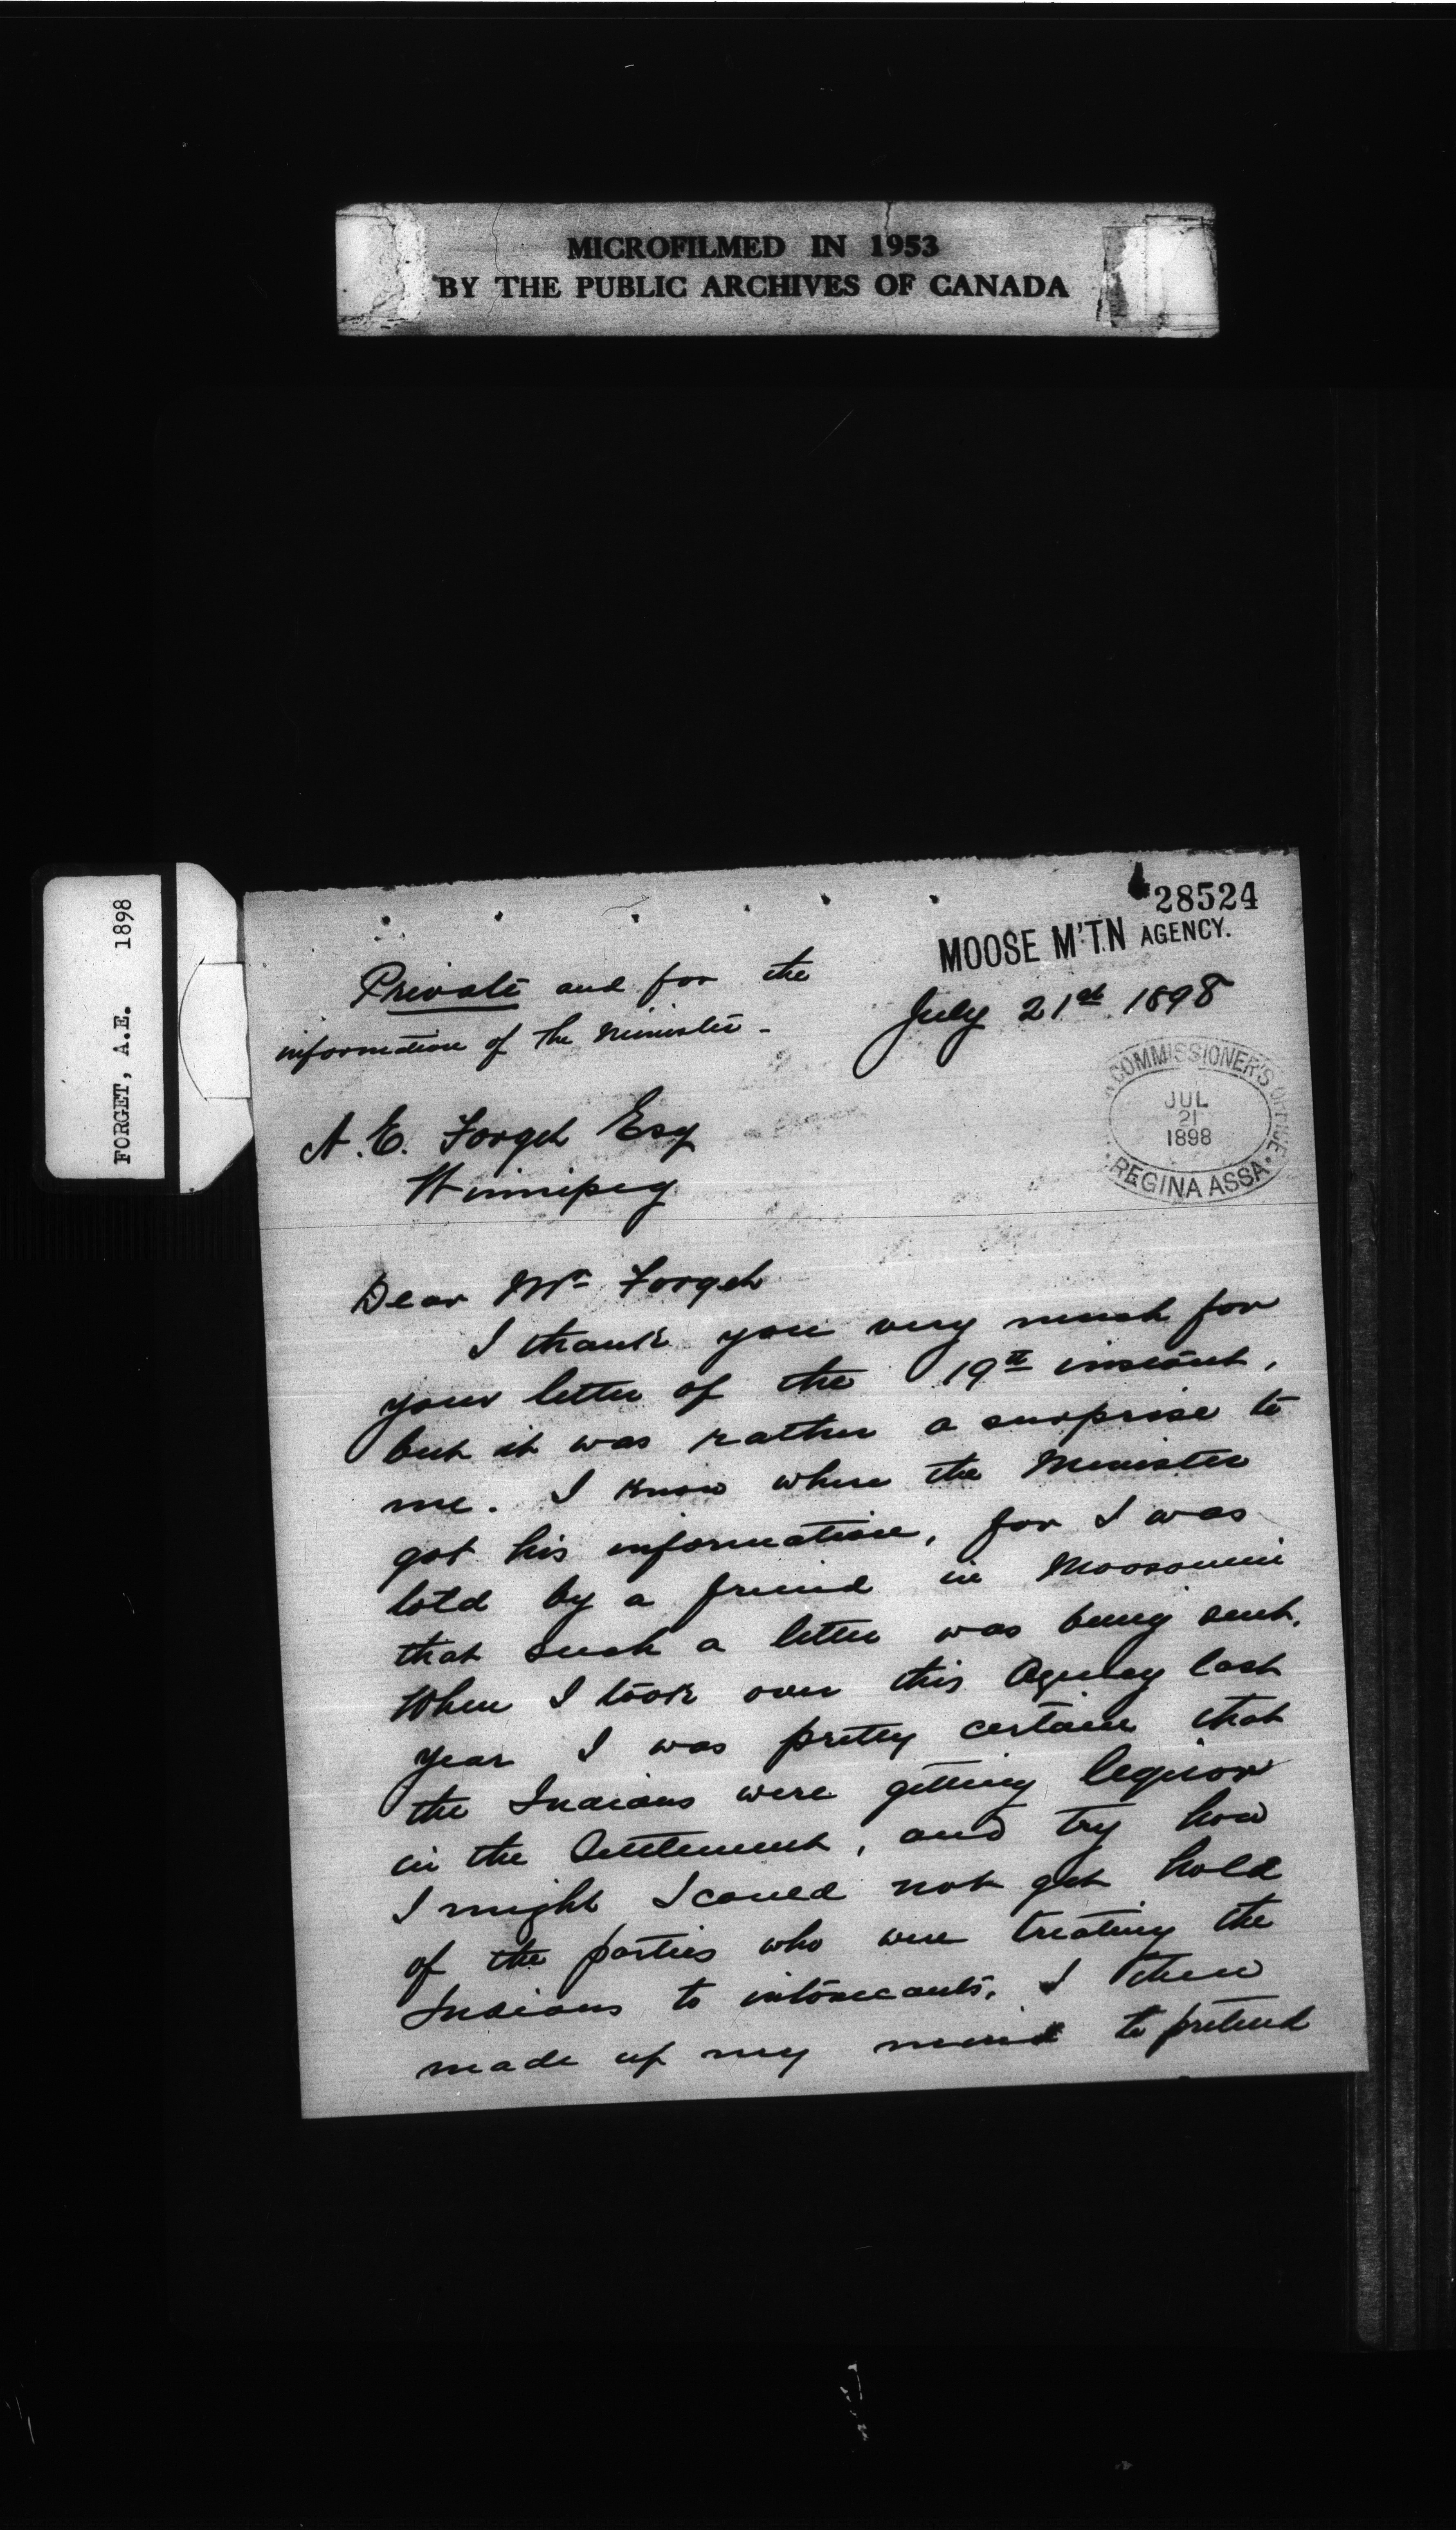 MICROFILMED IN 1953
BY THE PUBLIC ARCHIVES OF CANADA
FORGET, A.E. 1898
28524
MOOSE M'T'N AGENCY.
Private and for the
information of the Minister -
July 21st 1898
COMMISSIONER'S OFFICE
JUL
21
1898
REGINA ASSA
A. E. Forget Esq
Winnipeg
Dear Mr Forget
I thank you very much for
your letter of the 19th instant,
but it was rather a surprise to
me. I know where the Minister
got his information, for I was
told by a friend in Moosomin
that such a letter was being sent.
When I took over this Agency last
year I was pretty certain that
the Indians were getting liquor
in the Settlement, and try how
I might I could not get hold
of the parties who were treating the
Indians to intoxicants. I then
made up my mind to pretend